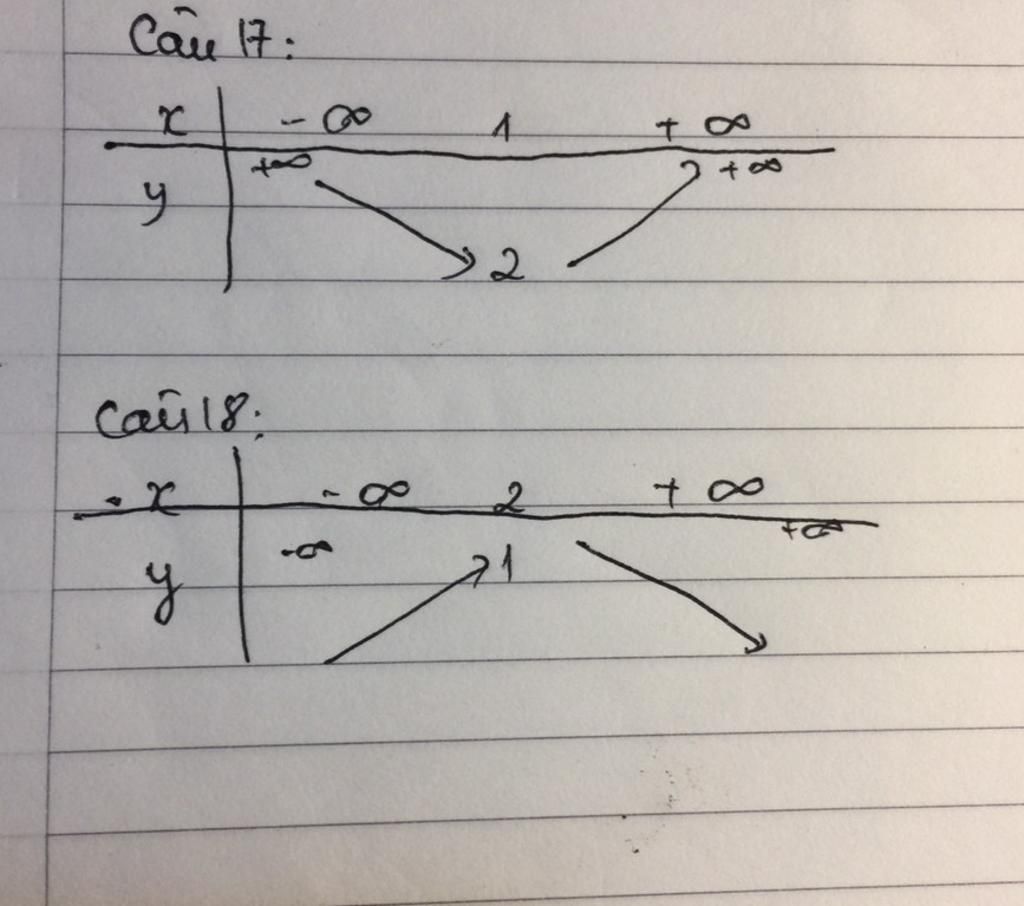 Câu 17:
x - ∞ 1 + ∞
+∞ +∞
y
2
Câu 18:
x - ∞ 2 + ∞
+∞
-∞ 1
y